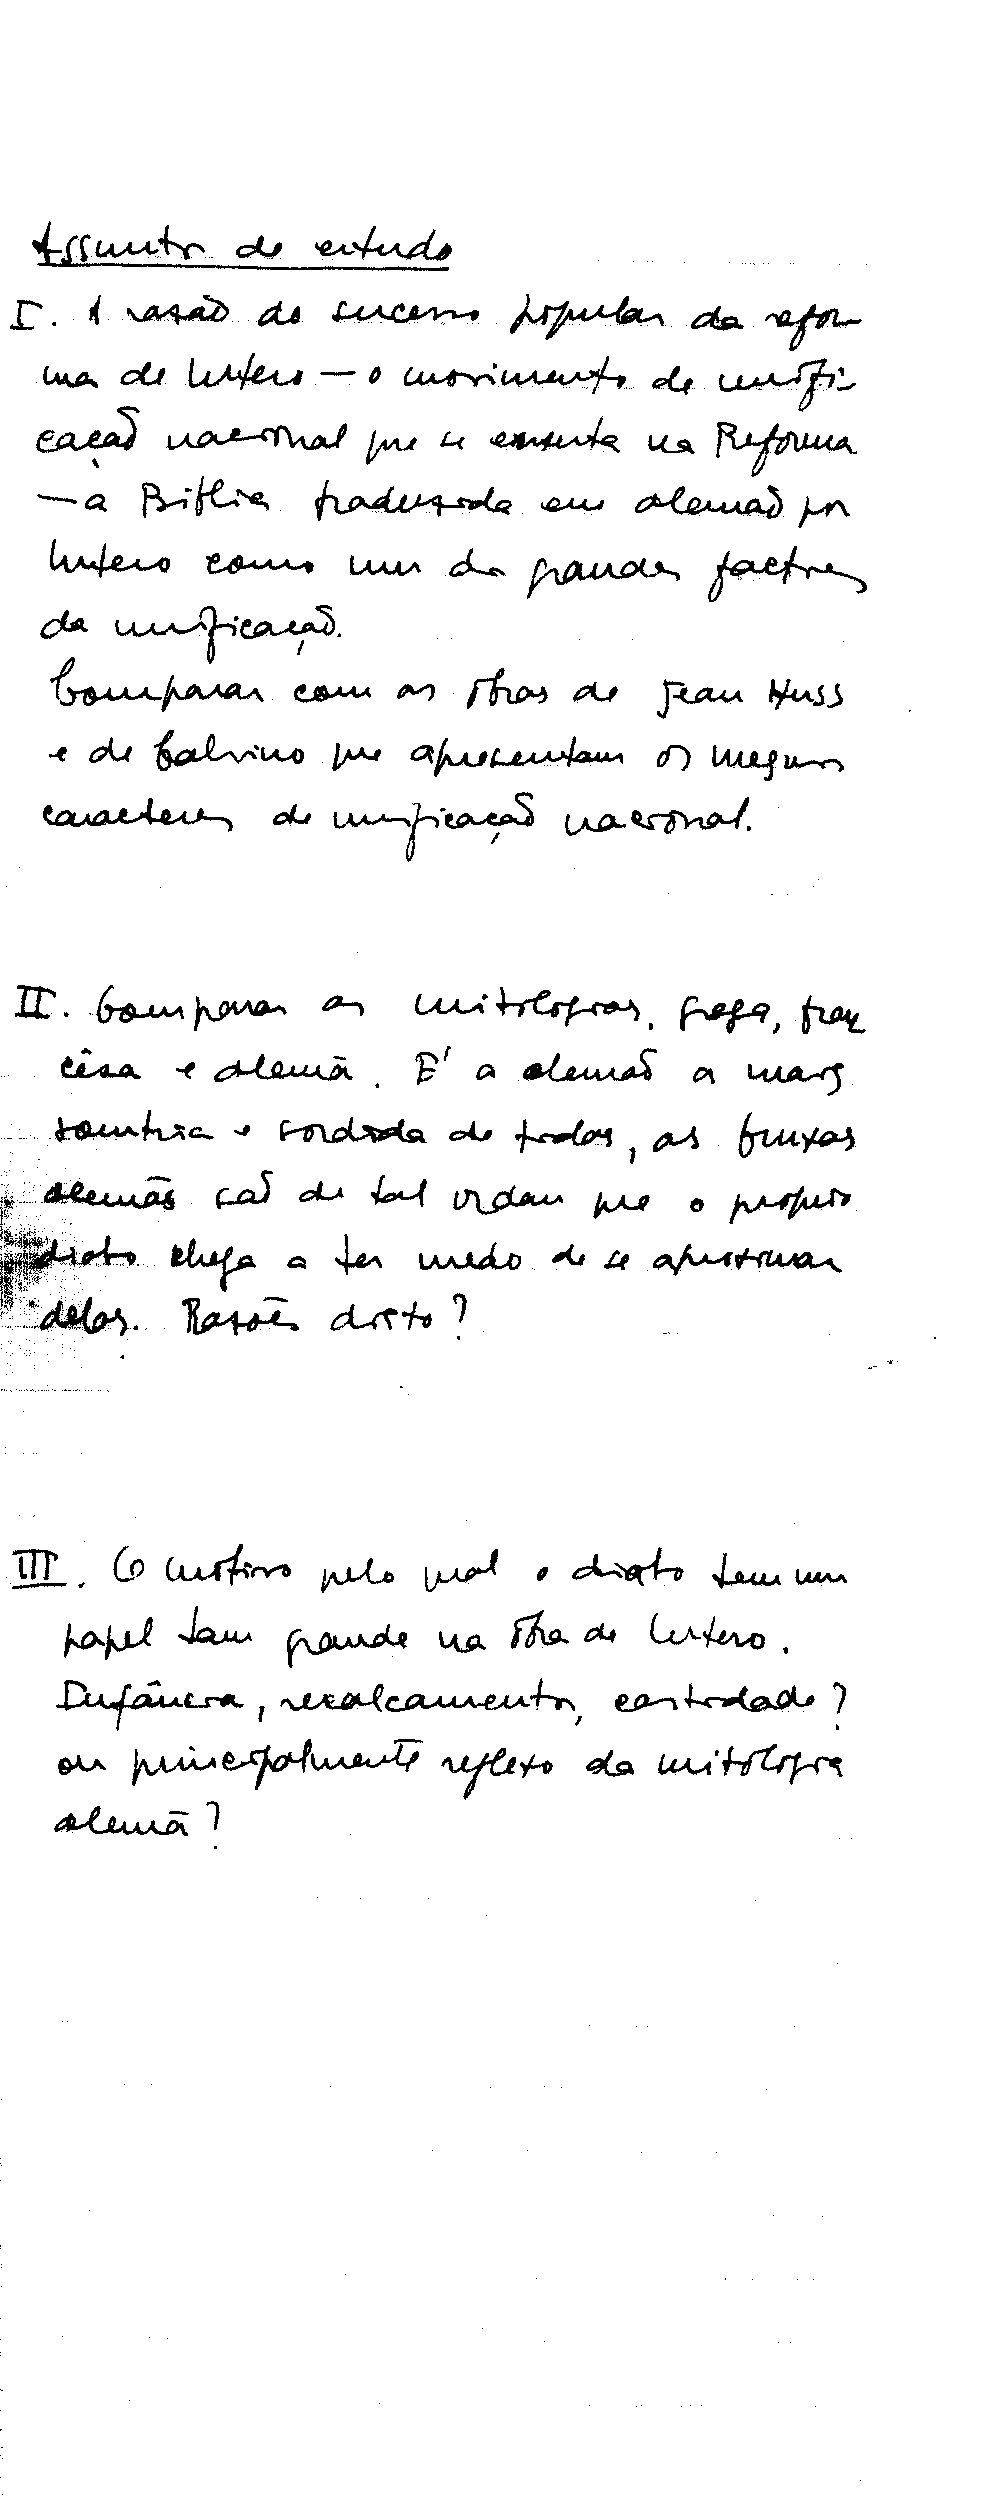 Assuntos de estudo
I. A rasão do sucesso popular da refor-
ma de Lutero — o movimento de unifi-
cação nacional que se enxerta na Reforma
— a Biblia traduzida em alemão por
Lutero como um dos grandes factores
da unificação.
Comparar com as obras de Jean Huss
e de Calvino que apresentam os mesmos
caracteres de unificação nacional.
II. Comparar as mitologias, grega, fran
cêsa e alemã. É a alemã a mais
sombria e sordida de todas, as bruxas
alemãs são de tal ordem que o proprio
diabo chega a ter medo de se aproximar
delas. Rasões disto?
III. O motivo pelo qual o diabo tem um
papel tam grande na obra de Lutero.
Infância, recalcamentos, castidade?
ou principalmente reflexo da mitologia
alemã?